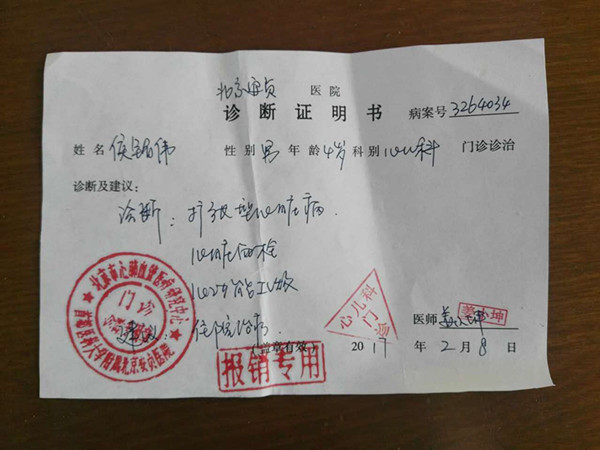 北京安贞 医院
诊断证明书 病案号 3264034
姓名 侯 伟 性别 男 年龄 4岁 科别 心儿科 门诊诊治
诊断及建议:
诊断: 扩张型心肌病.
心功能IV级
住院治疗
北京市心肺血管疾病研究中心
首都医科大学附属北京安贞医院
门诊
心儿科
门诊
报销专用
(盖章有效)
医师 姜小坤
2017 年 2 月 8 日